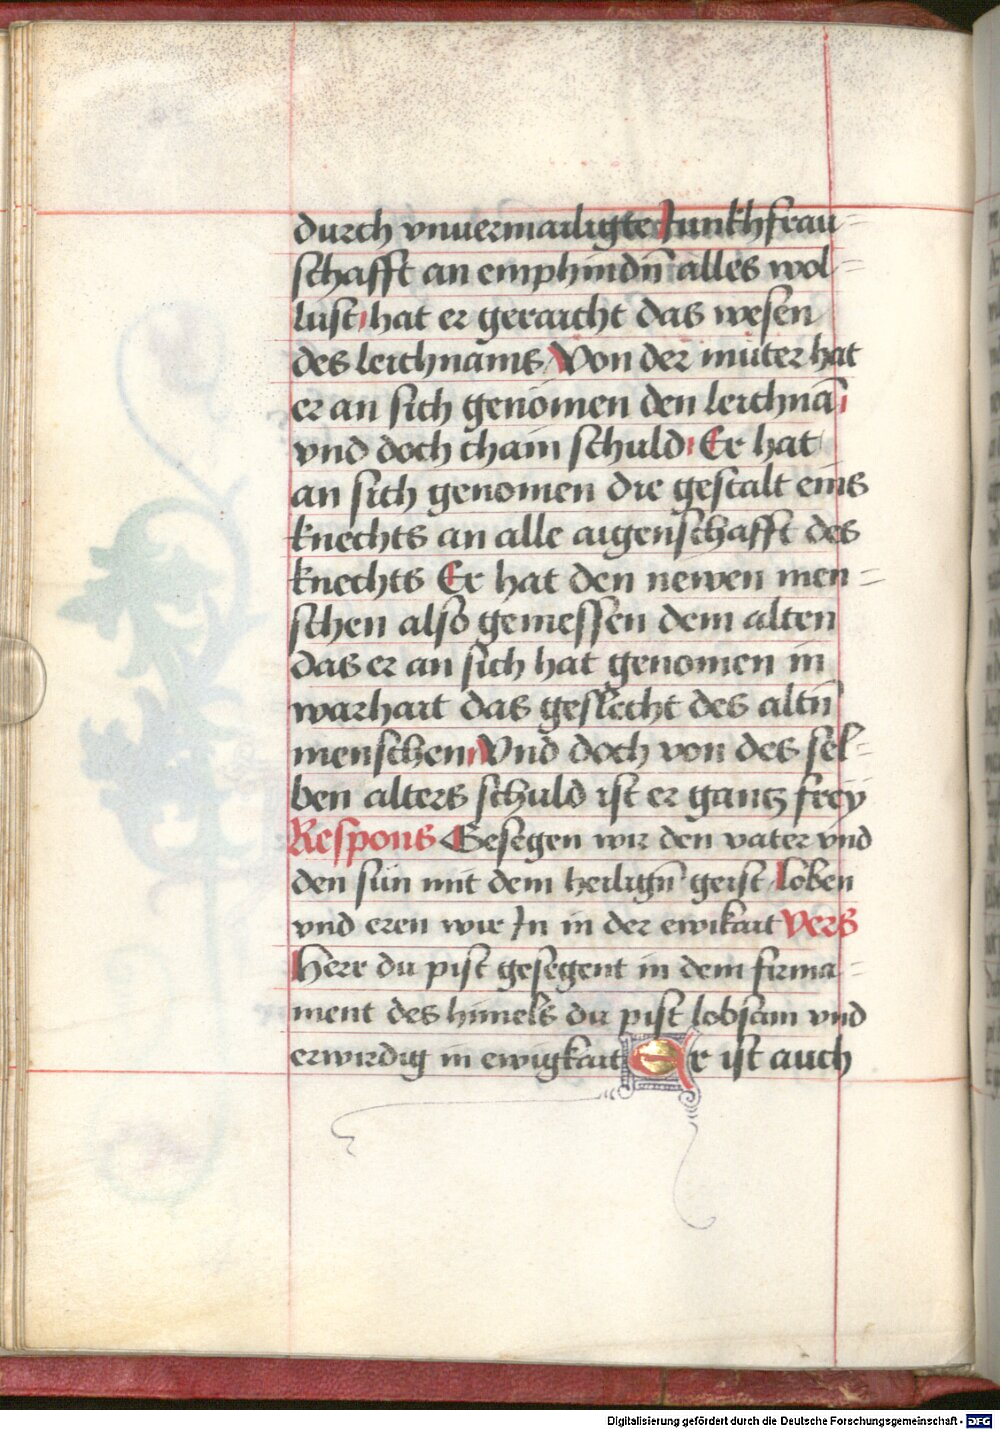 durch vnuermailigte Junkhfrau=
schafft an emphindn̄ alles wol=
lust hat er geraicht das wesen
des leichnams Von der müter hat
er an sich genomen den leichnā
vnd doch chain schuld Er hat
an sich genomen die gestalt eins
knechts an alle aigenschafft des
knechts Er hat den newen men=
schen also gemessen dem alten
das er an sich hat genomen in
warhait das geslecht des altn̄
menschen Vnd doch von des sel=
ben alters schuld ist er gantz frey
Respons Gesegen wir den vater vnd
den sün mit dem heilign̄ geist loben
vnd eren wir In in der ewikait Vers
Herr du pist gesegent in dem firma=
ment des himels du pist lobsam vnd
erwirdig in ewigkait Er ist auch
Digitalisierung gefördert durch die Deutsche Forschungsgemeinschaft - DFG